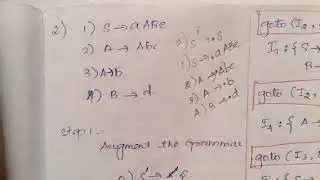 2) 1) S → aABe
2) A → Abc
3) A → b
4) B → d
0) S' → •S
1) S → •aABe
2) A → •Abc
3) A → •b
4) B → •d
Step 1:-
Augment the Grammar
0) S' → •S
goto (I2,
I5: {S →
B →
goto (I2,
I4: {A →
goto (I3,